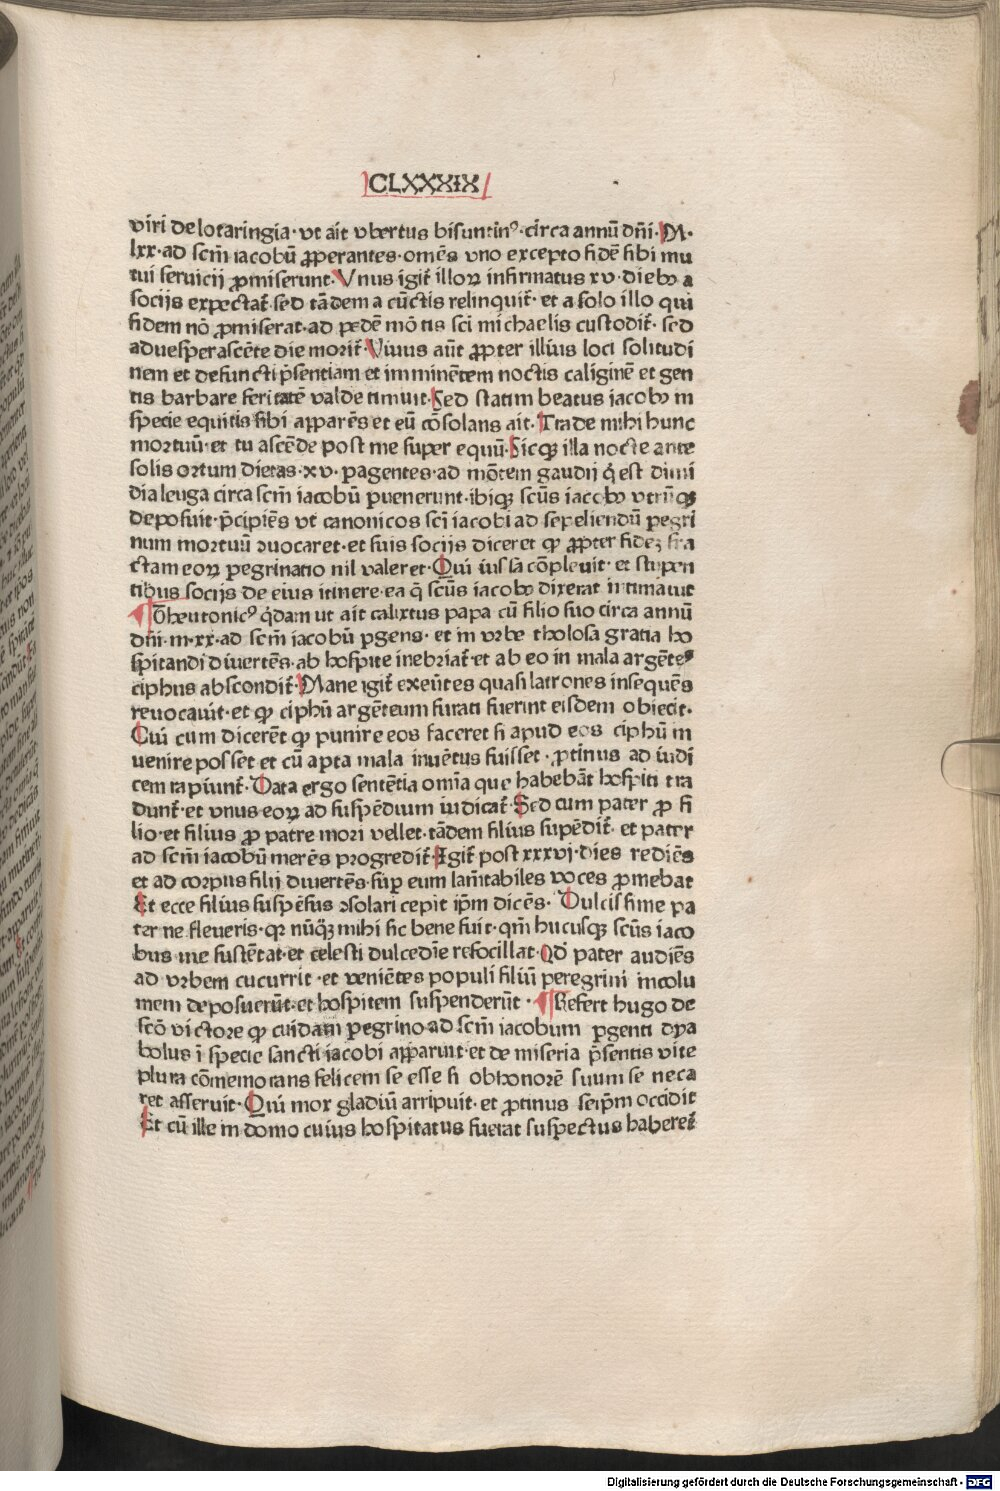 CLXXXIX
viri de lotaringia · vt ait vbertus bisuntinꝰ · circa annū dn̄i · M ·
lxx · ad scm̄ iacobū ꝓperantes · omēs vno excepto fidē sibi mu
tui seruicij ꝓmiserunt · Vnus igit̄ illoꝝ infirmatus xv · diebꝰ a
socijs expectat̄ · sed tādem a cūctis relinquit̄ · et a solo illo qui
fidem nō ꝓmiserat · ad pedē mōtis scī michaelis custodit̄ · sed
aduesperascēte die morit̄ · Viuus aūt ꝓpter illius loci solitudi
nem et defuncti p̄sentiam et imminētem noctis caliginē et gen
tis barbare feritatē valde timuit · Sed statim beatus iacobꝰ in
specie equitis sibi apparēs et eū cōsolans ait · Trade mihi hunc
mortuū · et tu ascēde post me super equū · Sicqꝫ illa nocte ante
solis ortum dietas · xv · ꝑagentes · ad mōtem gaudij q̄ est dimi
dia leuga circa scm̄ iacobū ꝑuenerunt · ibiqꝫ scūs iacobꝰ vtrūqꝫ
deposuit · p̄cipiēs vt canonicos scī iacobi ad sepeliendū pegri
num mortuū ↄuocaret · et suis socijs diceret qꝫ ꝓpter fideꝫ fra
ctam eoꝝ ꝑegrinatio nil valeret · Qui iussa cōpleuit · et stupen
tibus socijs de eius itinere · ea q̄ scūs iacobꝰ dixerat intimauit
¶ Theutonicꝰ q̇dam ut ait calixtus papa cū filio suo circa annū
dn̄i · m · xx · ad scm̄ iacobū ꝑgens · et in vrbe tholosa gratia ho
spitandi diuertēs · ab hospite inebriat̄ · et ab eo in mala argēteꝰ
ciphus abscondit̄ · Mane igit̄ exeūtes quasi latrones insequēs
reuocauit · et qꝫ ciphū argēteum furati fuerint eisdem obiecit ·
Cui cum dicerēt qꝫ punire eos faceret si apud eos ciphū in
venire possēt et cū apta mala inuētus fuisset · ꝓtinus ad iudi
cem rapiunt̄ · Data ergo sentētia omīa que habebāt hospiti tra
dunt̄ · et vnus eoꝝ ad suspēdium iudicat̄ · Sed cum pater ꝓ fi
lio · et filius ꝓ patre mori vellet · tādem filius supēdit̄ · et pater
ad scm̄ iacobū merēs progredit̄ · Igit̄ post xxxvj · dies rediēs
et ad corpus filij diuertēs · suꝑ eum lam̄tabiles voces ꝓmebat
Et ecce filius suspēsus ↄsolari cepit ip̄m dicēs · Dulcissime pa
ter ne fleueris · qꝛ nūqꝫ mihi sic bene fuit · qm̄ hucusqꝫ scūs iaco
bus me sustētat · et celesti dulcedīe refocillat · Qd̄ pater audiēs
ad vrbem cucurrit · et veniētes populi filiū peregrini incolu
mem deposuerūt · et hospitem suspenderūt · ¶ Refert hugo de
scō victore qꝫ cuidam ꝑegrino ad scm̄ iacobum ꝑgenti dya
bolus ī specie sancti iacobi apparuit · et de miseria p̄sentis vite
plura cōmemorans felicem se esse si ob honorē suum se neca
ret asseruit · Qui mox gladiū arripuit · et ꝓtinus seip̄m occidit
Et cū ille in domo cuius hospitatus fuerat suspectus haberet̄
Digitalisierung gefördert durch die Deutsche Forschungsgemeinschaft - DFG